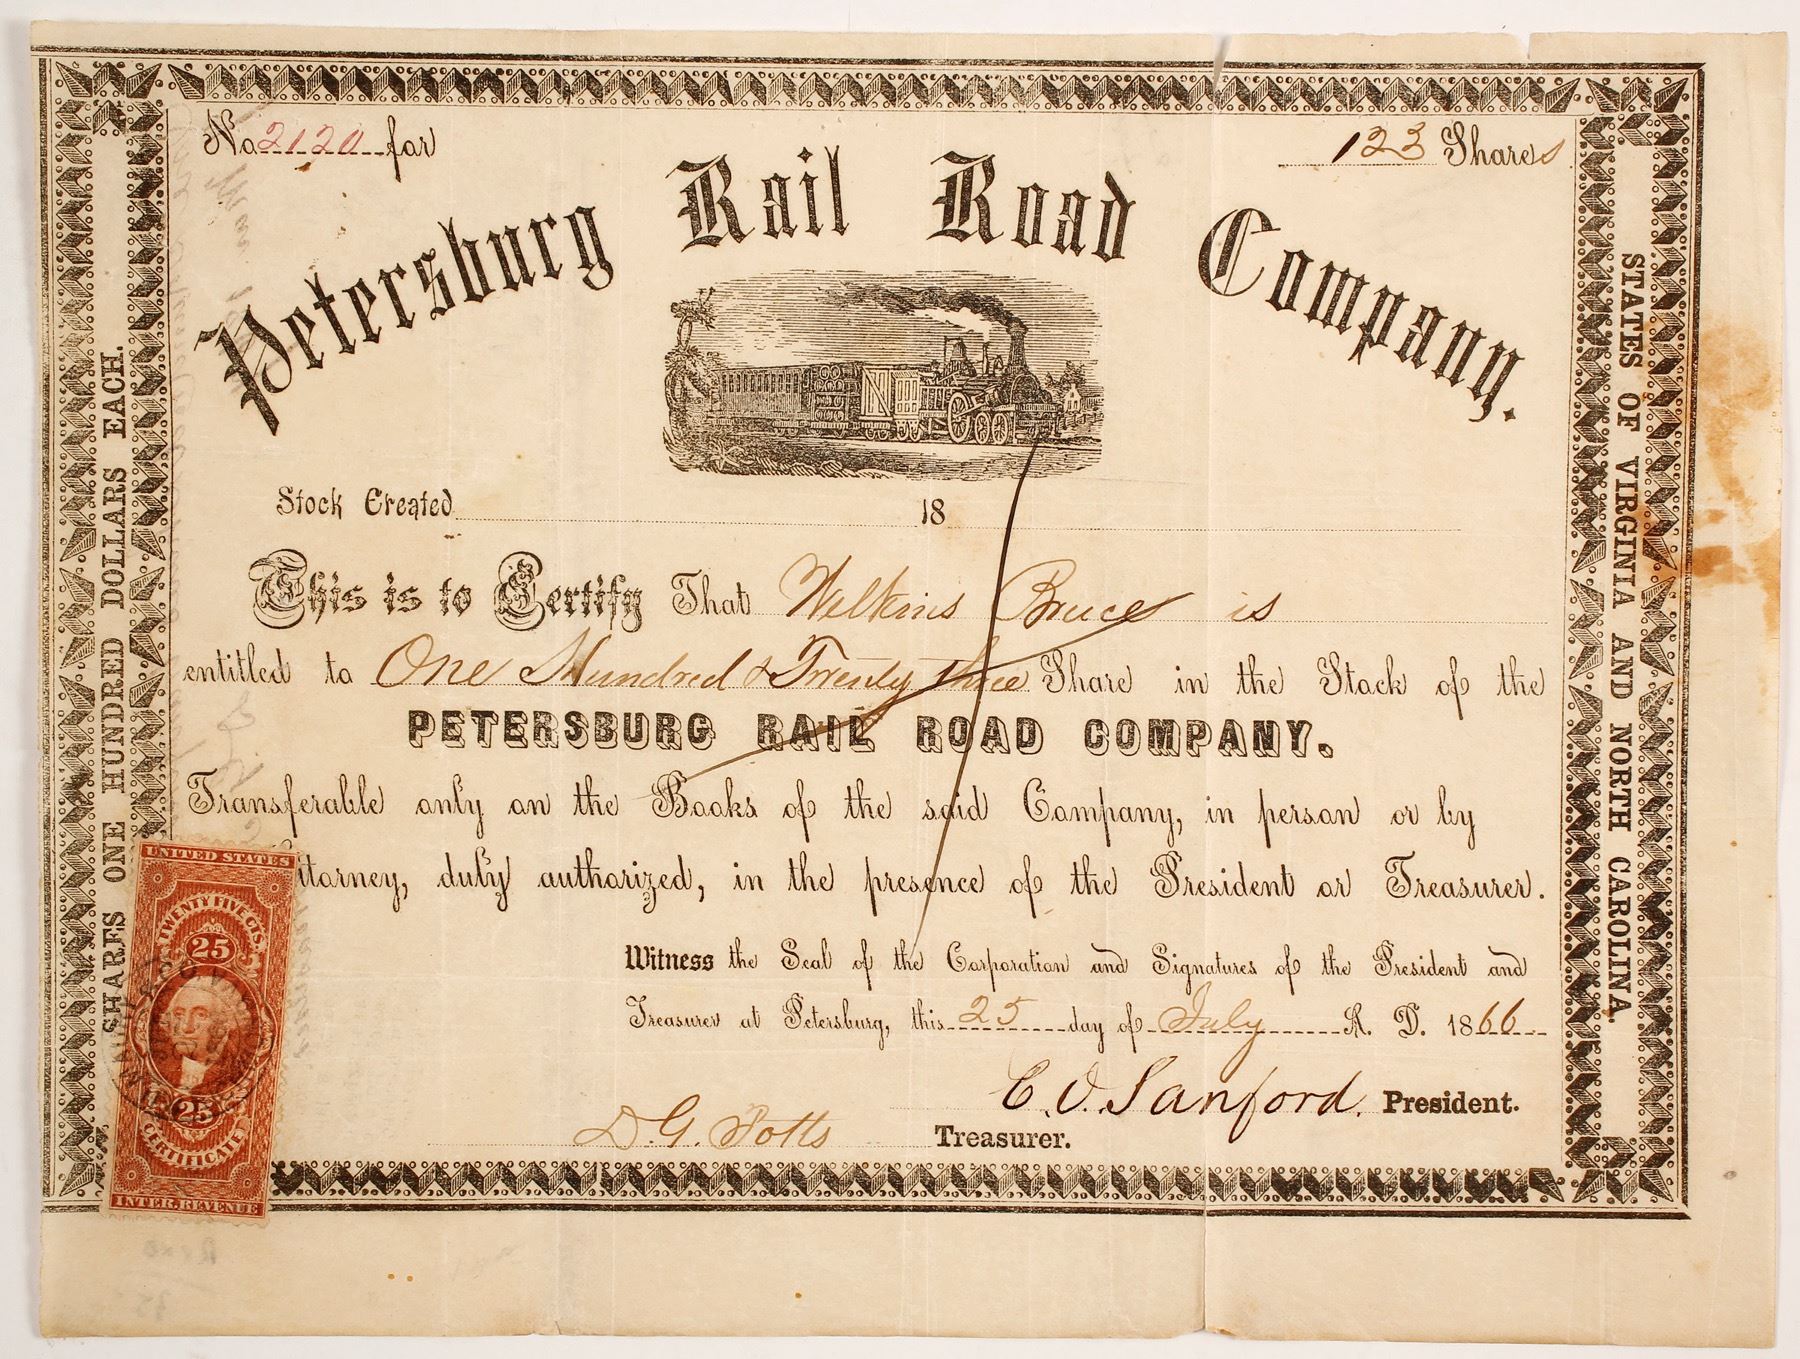 No 2120 for
123 Shares
Petersburg Rail Road Company.
Stock Created 18
This is to Certify That Welkins Bruce is
entitled to One Hundred & Twenty three Share in the Stock of the
PETERSBURG RAIL ROAD COMPANY.
Transferable only on the Books of the said Company, in person or by
ttorney, duly authorized, in the presence of the President or Treasurer.
Witness the Seal of the Corporation and Signatures of the President and
Treasurer at Petersburg, this 25 day of July A. D. 1866
C. O. Sanford. President.
D. G. Potts Treasurer.
SHARES ONE HUNDRED DOLLARS EACH.
STATES OF VIRGINIA AND NORTH CAROLINA.
UNITED STATES
TWENTY FIVE CTS.
25
25
CERTIFICATE
INTER. REVENUE